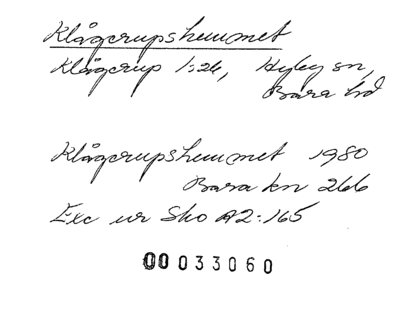 Klågerupshemmet
Klågerup 1:26, Hyby sn,
Bara hd
Klågerupshemmet 1980
Bara kn 266
Exc ur Sko A2:165
00033060